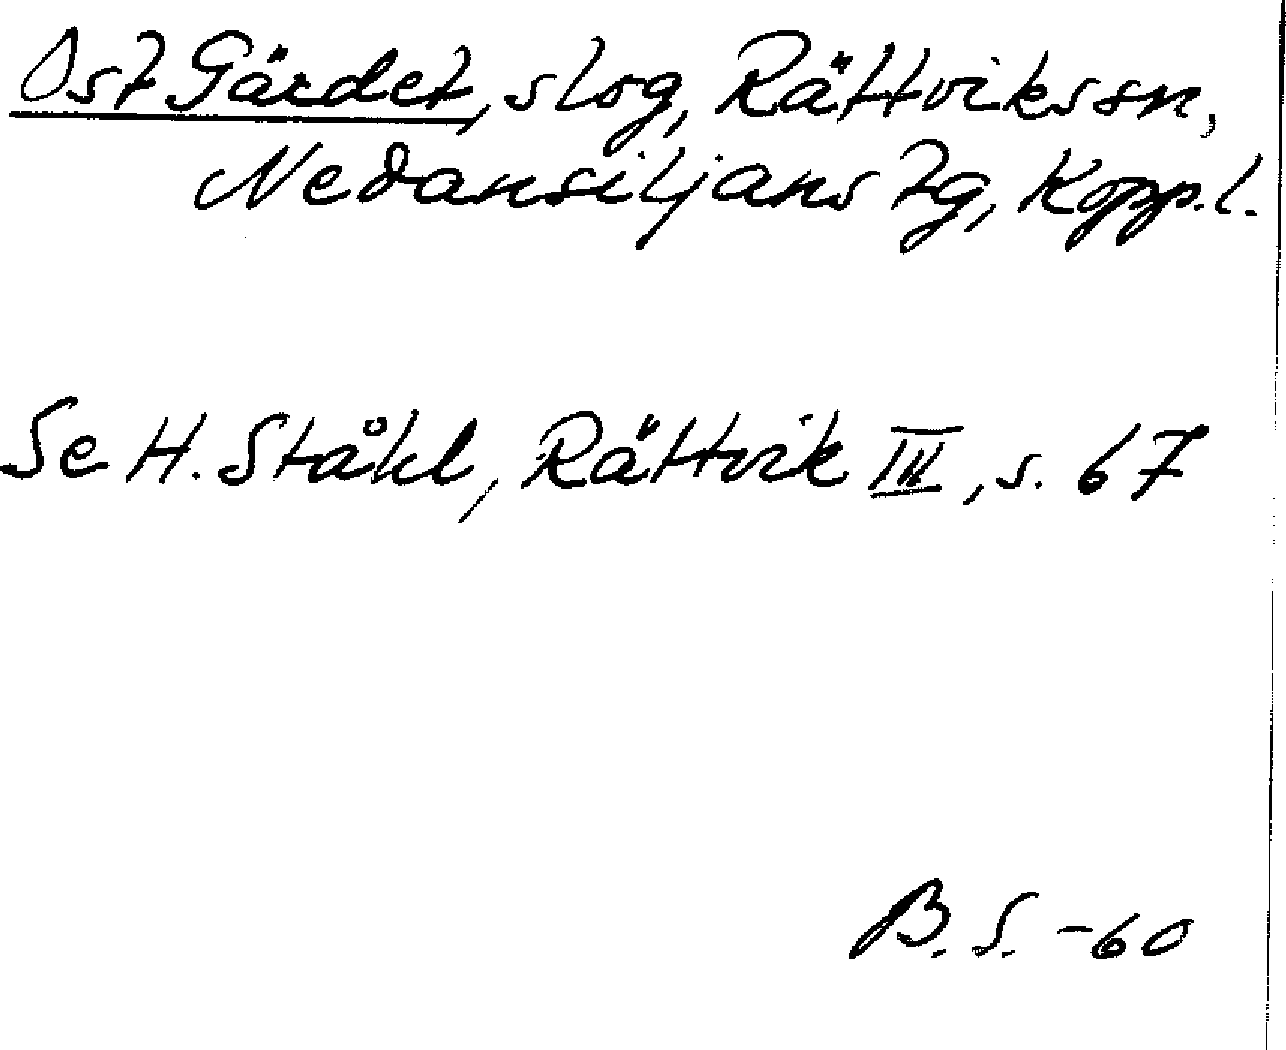 Ost Gärdet, slog, Rättviks sn,
Nedansiljans tg, Kopp. l.
Se H. Ståhl, Rättvik III, s. 67
B. S. -60